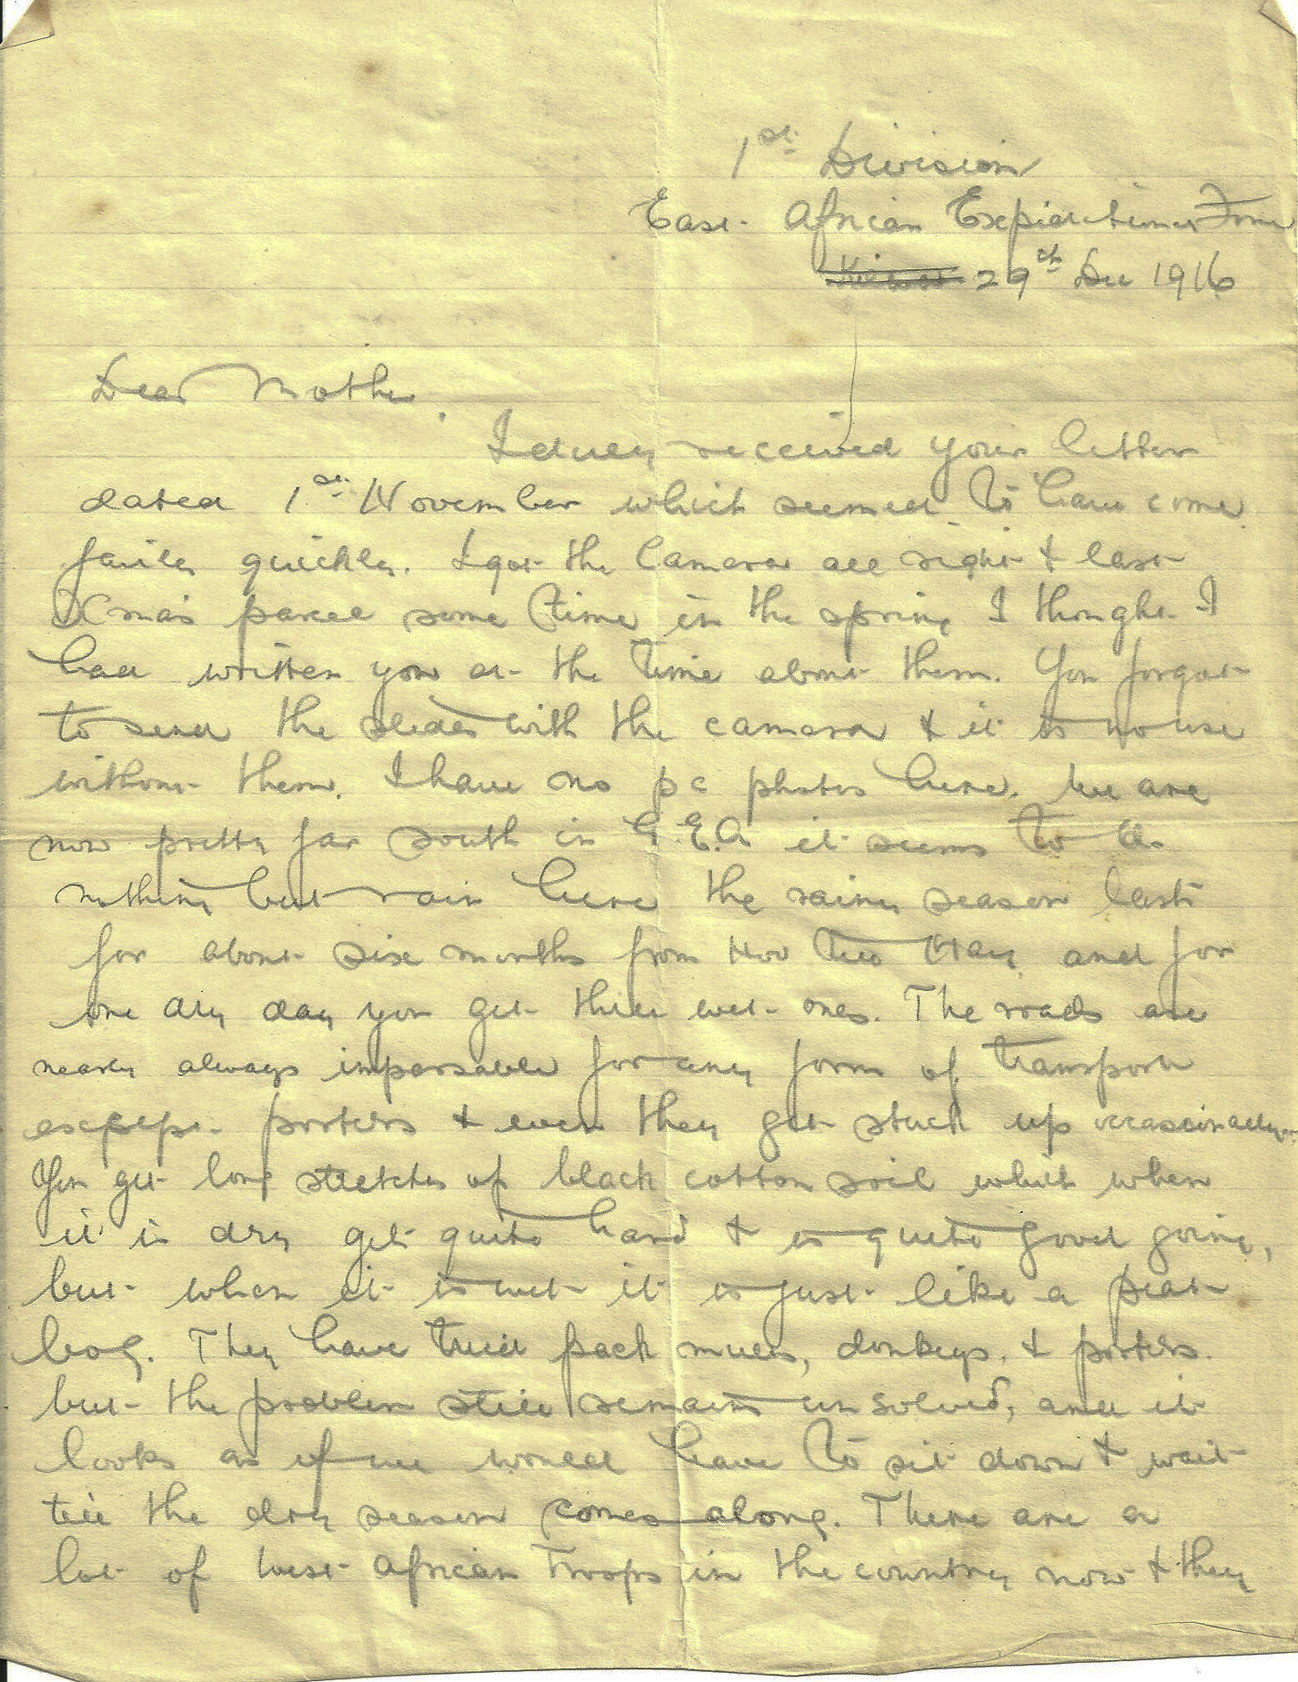 1st Division
East African Expeditionary Force
29th Dec 1916
Dear Mother
I duly received your letter
dated 1st November which seemed to have come
fairly quickly. I got the Camara all right & last
Xmas parcel some time in the spring I thought I
had written you at the time about them. You forgot
to send the slides with the camara & it is no use
without them. I have no pc photos here. We are
now pretty far south in G.E.A it seems to be
nothing but rain here the rainy season lasts
for about six months from Nov to May and for
one dry day you get three wet ones. The roads are
nearly always impassable for any form of transport
except porters & even they get stuck up occassionally
You get long stretches of black cotton soil which when
it is dry gets quite hard & is quite good going,
but when it is wet it is just like a peat
bog. They have tried pack mules, donkeys, & porters.
but the problem still remains unsolved, and it
looks as if we would have to sit down & wait
till the dry season comes along. There are a
lot of West African Troops in the country now & they